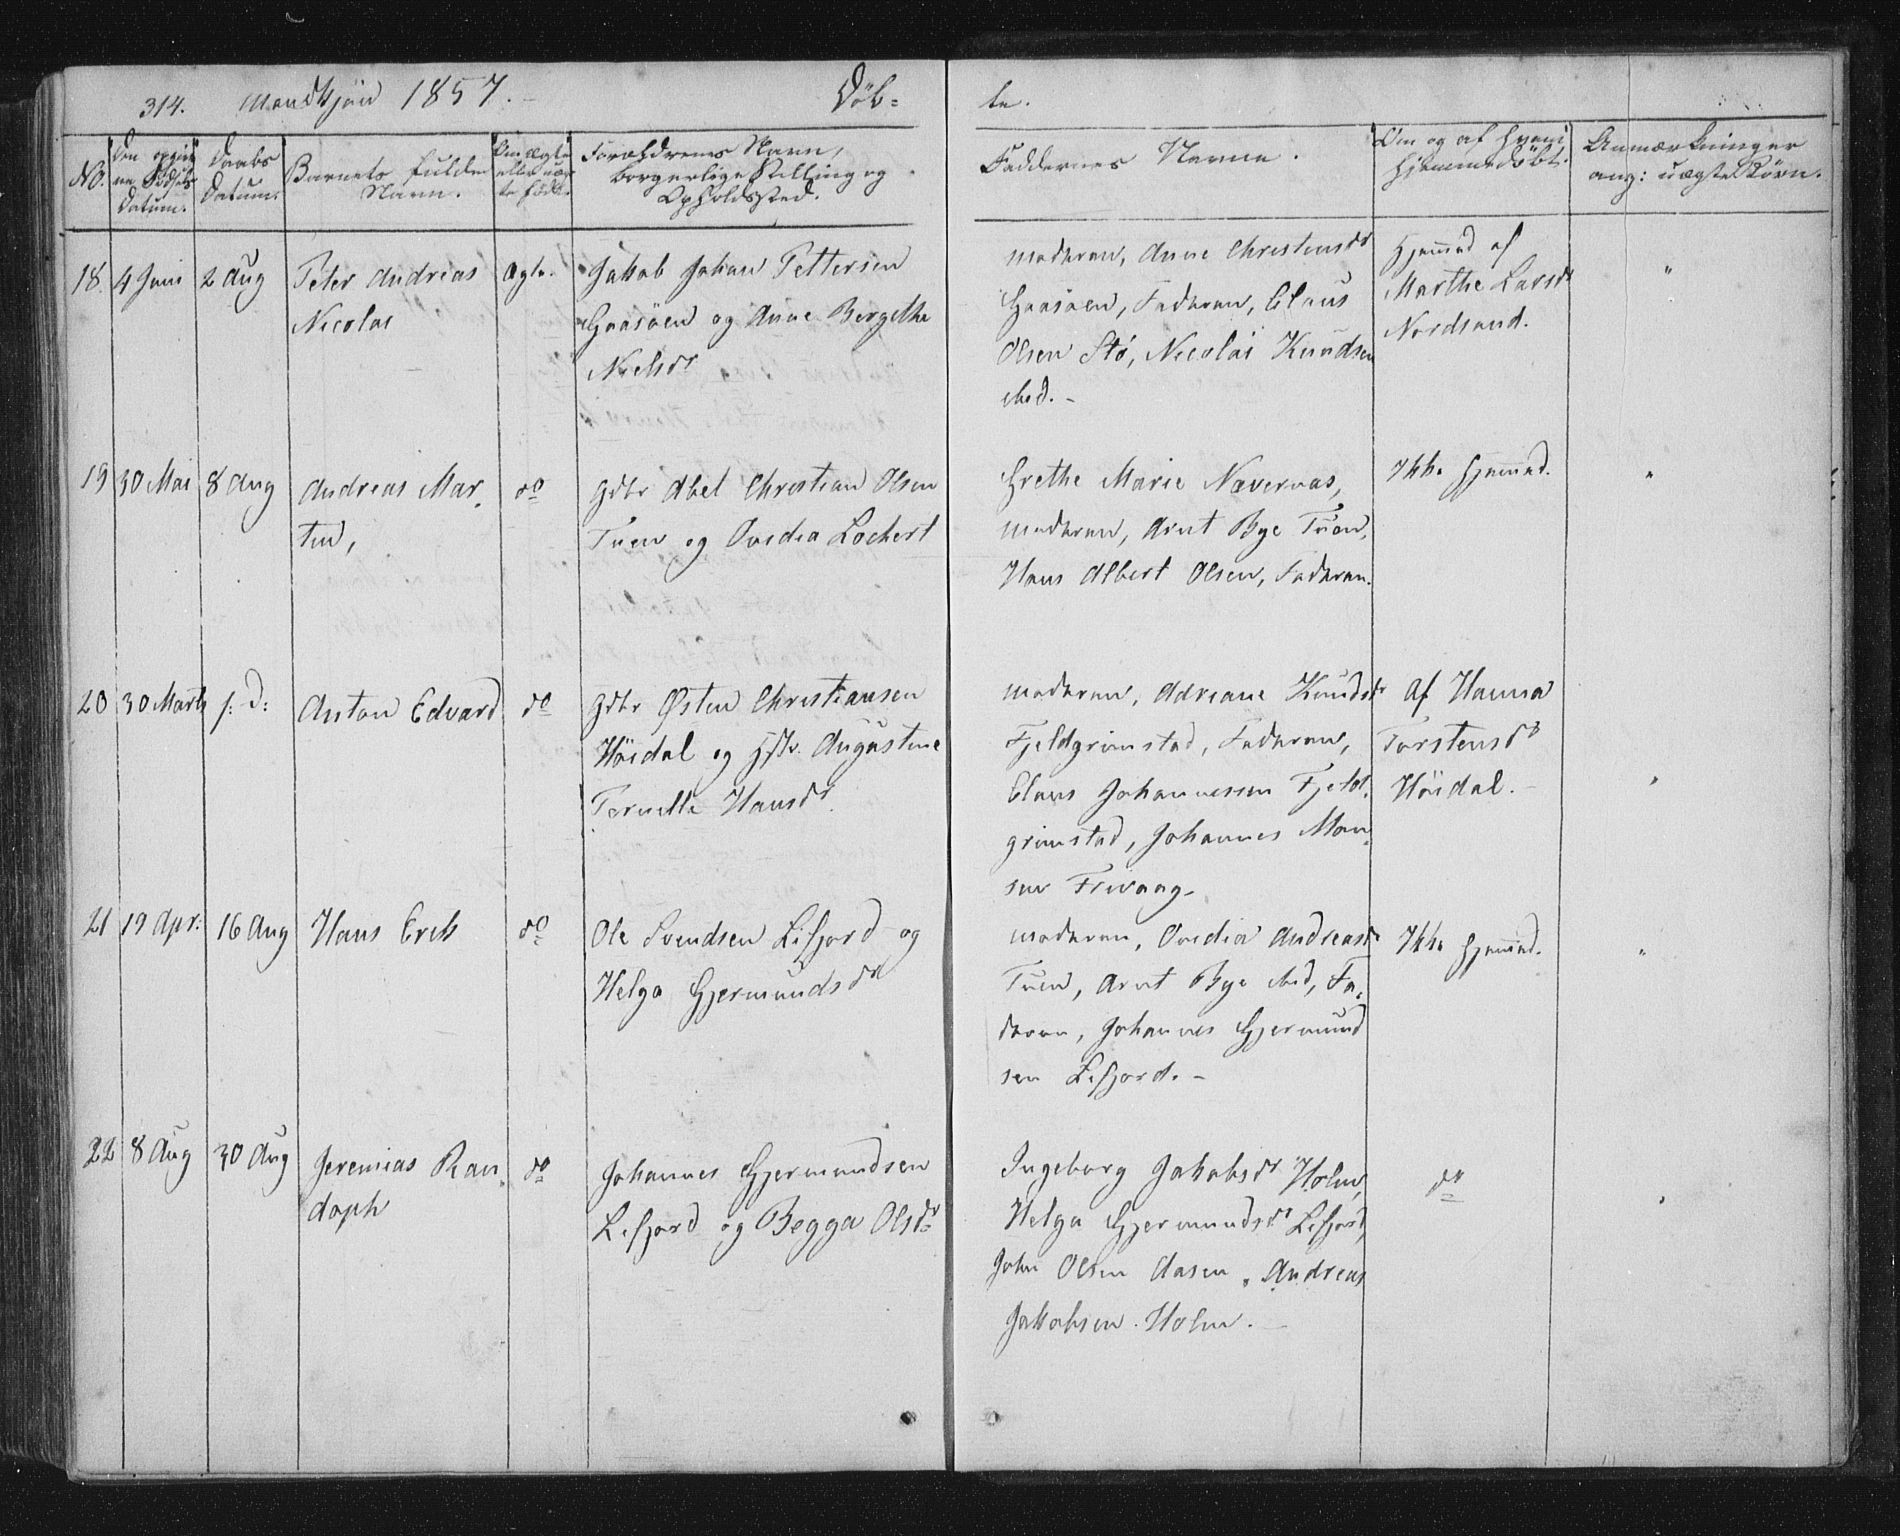 314. Mandkjön 1857. Döb-
te.
No.
Den opgiv
ne Födsels
Datum.
Daabs
Datum.
Barnets fulde
Navn.
Om ægte
eller uæg
te födt.
Forældrenes Navn,
borgerlige Stilling og
Opholdssted.
Faddernes Navne.
Om og af hvem
hjemmedöbt.
Anmærkninger
ang: uægte Börn.
18. 4 Juni 2 Aug Peter Andreas
Nicolai
Ægte.
Jakob Johan Pettersen
Gaasöen og Anne Bergethe
Nielsdr
Moderen, Anne Christensdr
Gaasöen, Faderen, Claus
Olsen Stö, Nicolai Knudsen
ibid. -
Hjemmed af
Marthe Larsdr
Nordsand.
"
19 30 Mai 8 Aug Andreas Mar-
tin,
do
Gdbr Abel Christian Olsen
Tuen og Ovidia Lochert
Grethe Marie Nævernas,
Moderen, Arnt Bye Tuen,
Hans Albert Olsen, Faderen.
Ikke hjemmed.
"
20 30 Marts s: D: Anton Edvard do
Gdbr Østen Christiansen
Höidal og Hstr. Augustine
Pernille Hansdr.
Moderen, Adriane Knudsdr
Fjeldgrimstad, Faderen,
Claus Johannesen Fjeld-
grimstad, Johannes Mon-
sen Frivaag-
Af Hanna
Torstensdr
Höidal. -
"
21 19 Apr: 16 Aug Hans Erik do
Ole Svendsen Lifjord og
Helga Gjermundsdr
Moderen, Ovidia Andreasdr
Tuen, Arnt Bye ibid, Fa-
deren, Johannes Gjermund
sen Lifjord. -
Ikke hjemmed.
"
22 8 Aug 30 Aug Jeremias Ran-
doph
do
Johannes Gjermundsen
Lifjord og Begga Olsdr
Ingeborg Jakobsdr Holm,
Helga Gjermundsdr Lifjord,
John Olsen Aasen, Andreas
Jakobsen Holm. -
do
"